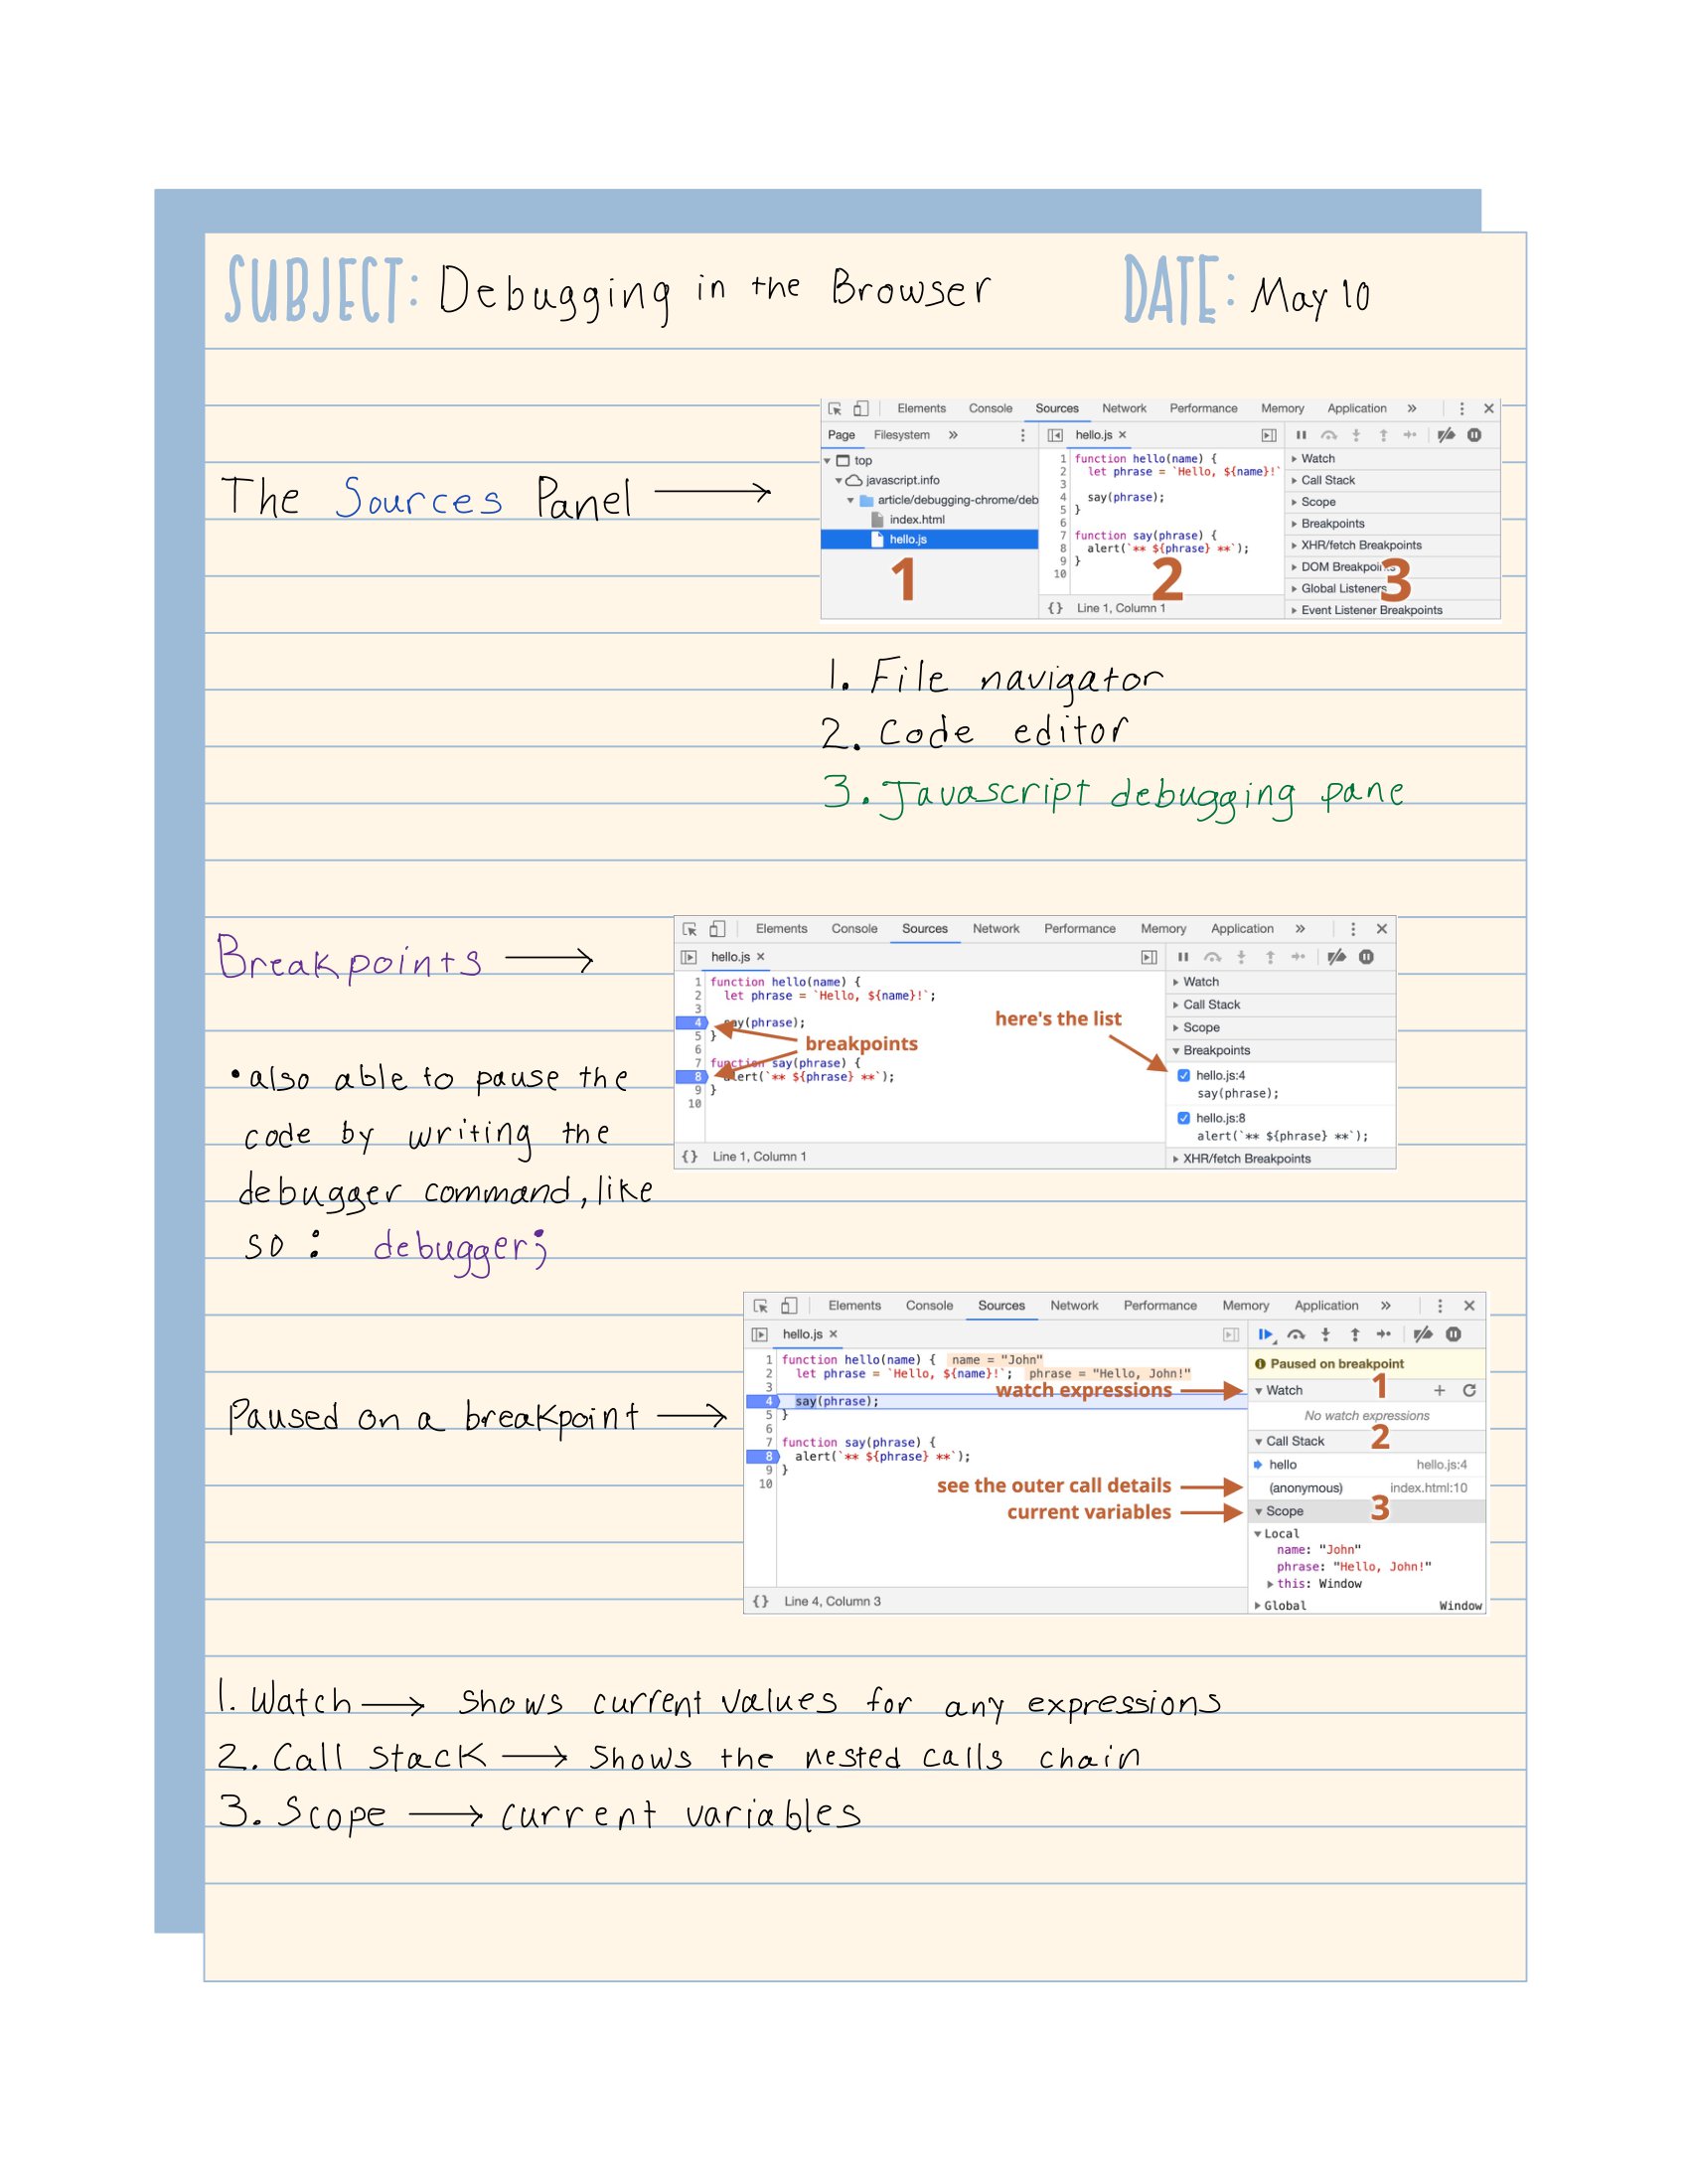 SUBJECT: Debugging in the Browser DATE: May 10
Elements Console Sources Network Performance Memory Application »
Page Filesystem » hello.js ×
top
javascript.info
article/debugging-chrome/deb
index.html
hello.js
1
1 function hello(name) {
2 let phrase = `Hello, ${name}!`
3
4 say(phrase);
5 }
6
7 function say(phrase) {
8 alert(`** ${phrase} **`);
9 }
10
2
{} Line 1, Column 1
Watch
Call Stack
Scope
Breakpoints
XHR/fetch Breakpoints
DOM Breakpoints
Global Listeners
Event Listener Breakpoints
3
The Sources Panel →
1. File navigator
2. Code editor
3. Javascript debugging pane
Breakpoints →
Elements Console Sources Network Performance Memory Application »
hello.js ×
1 function hello(name) {
2 let phrase = `Hello, ${name}!`;
3
4 say(phrase);
5 }
6
7 function say(phrase) {
8 alert(`** ${phrase} **`);
9 }
10
breakpoints
here's the list
{} Line 1, Column 1
Watch
Call Stack
Scope
Breakpoints
hello.js:4
say(phrase);
hello.js:8
alert(`** ${phrase} **`);
XHR/fetch Breakpoints
• also able to pause the
code by writing the
debugger command, like
so : debugger;
Elements Console Sources Network Performance Memory Application »
hello.js ×
1 function hello(name) { name = "John"
2 let phrase = `Hello, ${name}!`; phrase = "Hello, John!"
3
4 say(phrase);
5 }
6
7 function say(phrase) {
8 alert(`** ${phrase} **`);
9 }
10
watch expressions
see the outer call details
current variables
{} Line 4, Column 3
Paused on breakpoint
1
Watch
No watch expressions
2
Call Stack
hello hello.js:4
(anonymous) index.html:10
3
Scope
Local
name: "John"
phrase: "Hello, John!"
this: Window
Global Window
Paused on a breakpoint →
1. Watch → shows current values for any expressions
2. Call stack → shows the nested calls chain
3. Scope → current variables